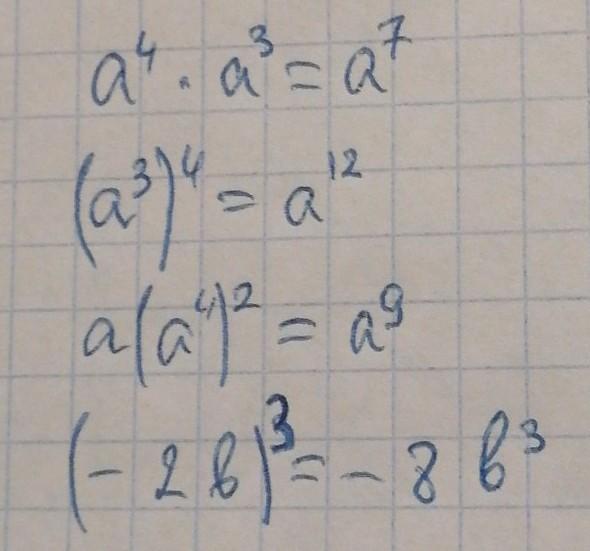 a⁴ · a³ = a⁷
(a³)⁴ = a¹²
a(a⁴)² = a⁹
(- 2 b)³ = - 8 b³